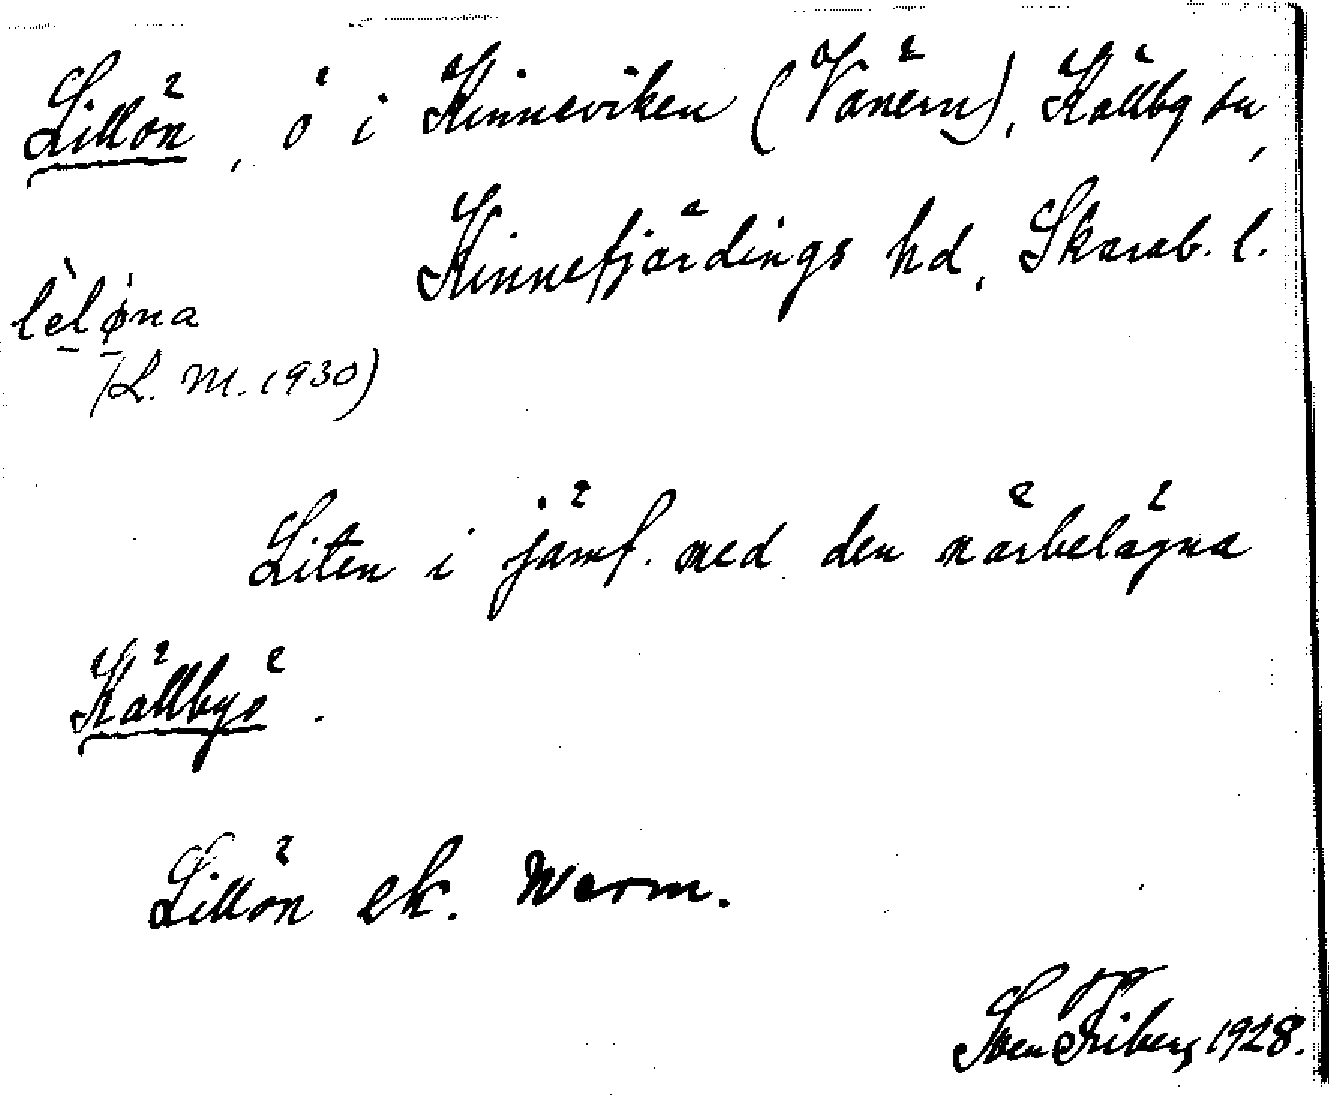 Lillön, ö i Kinneviken (Vänern), Källby sn,
Kinnefjärdings hd, Skarab. l.
lèløna
(L. M. 1930)
Liten i jämf. med den närbelägna
Källbyö.
Lillön ek. Werm.
Sven Friberg 1928.